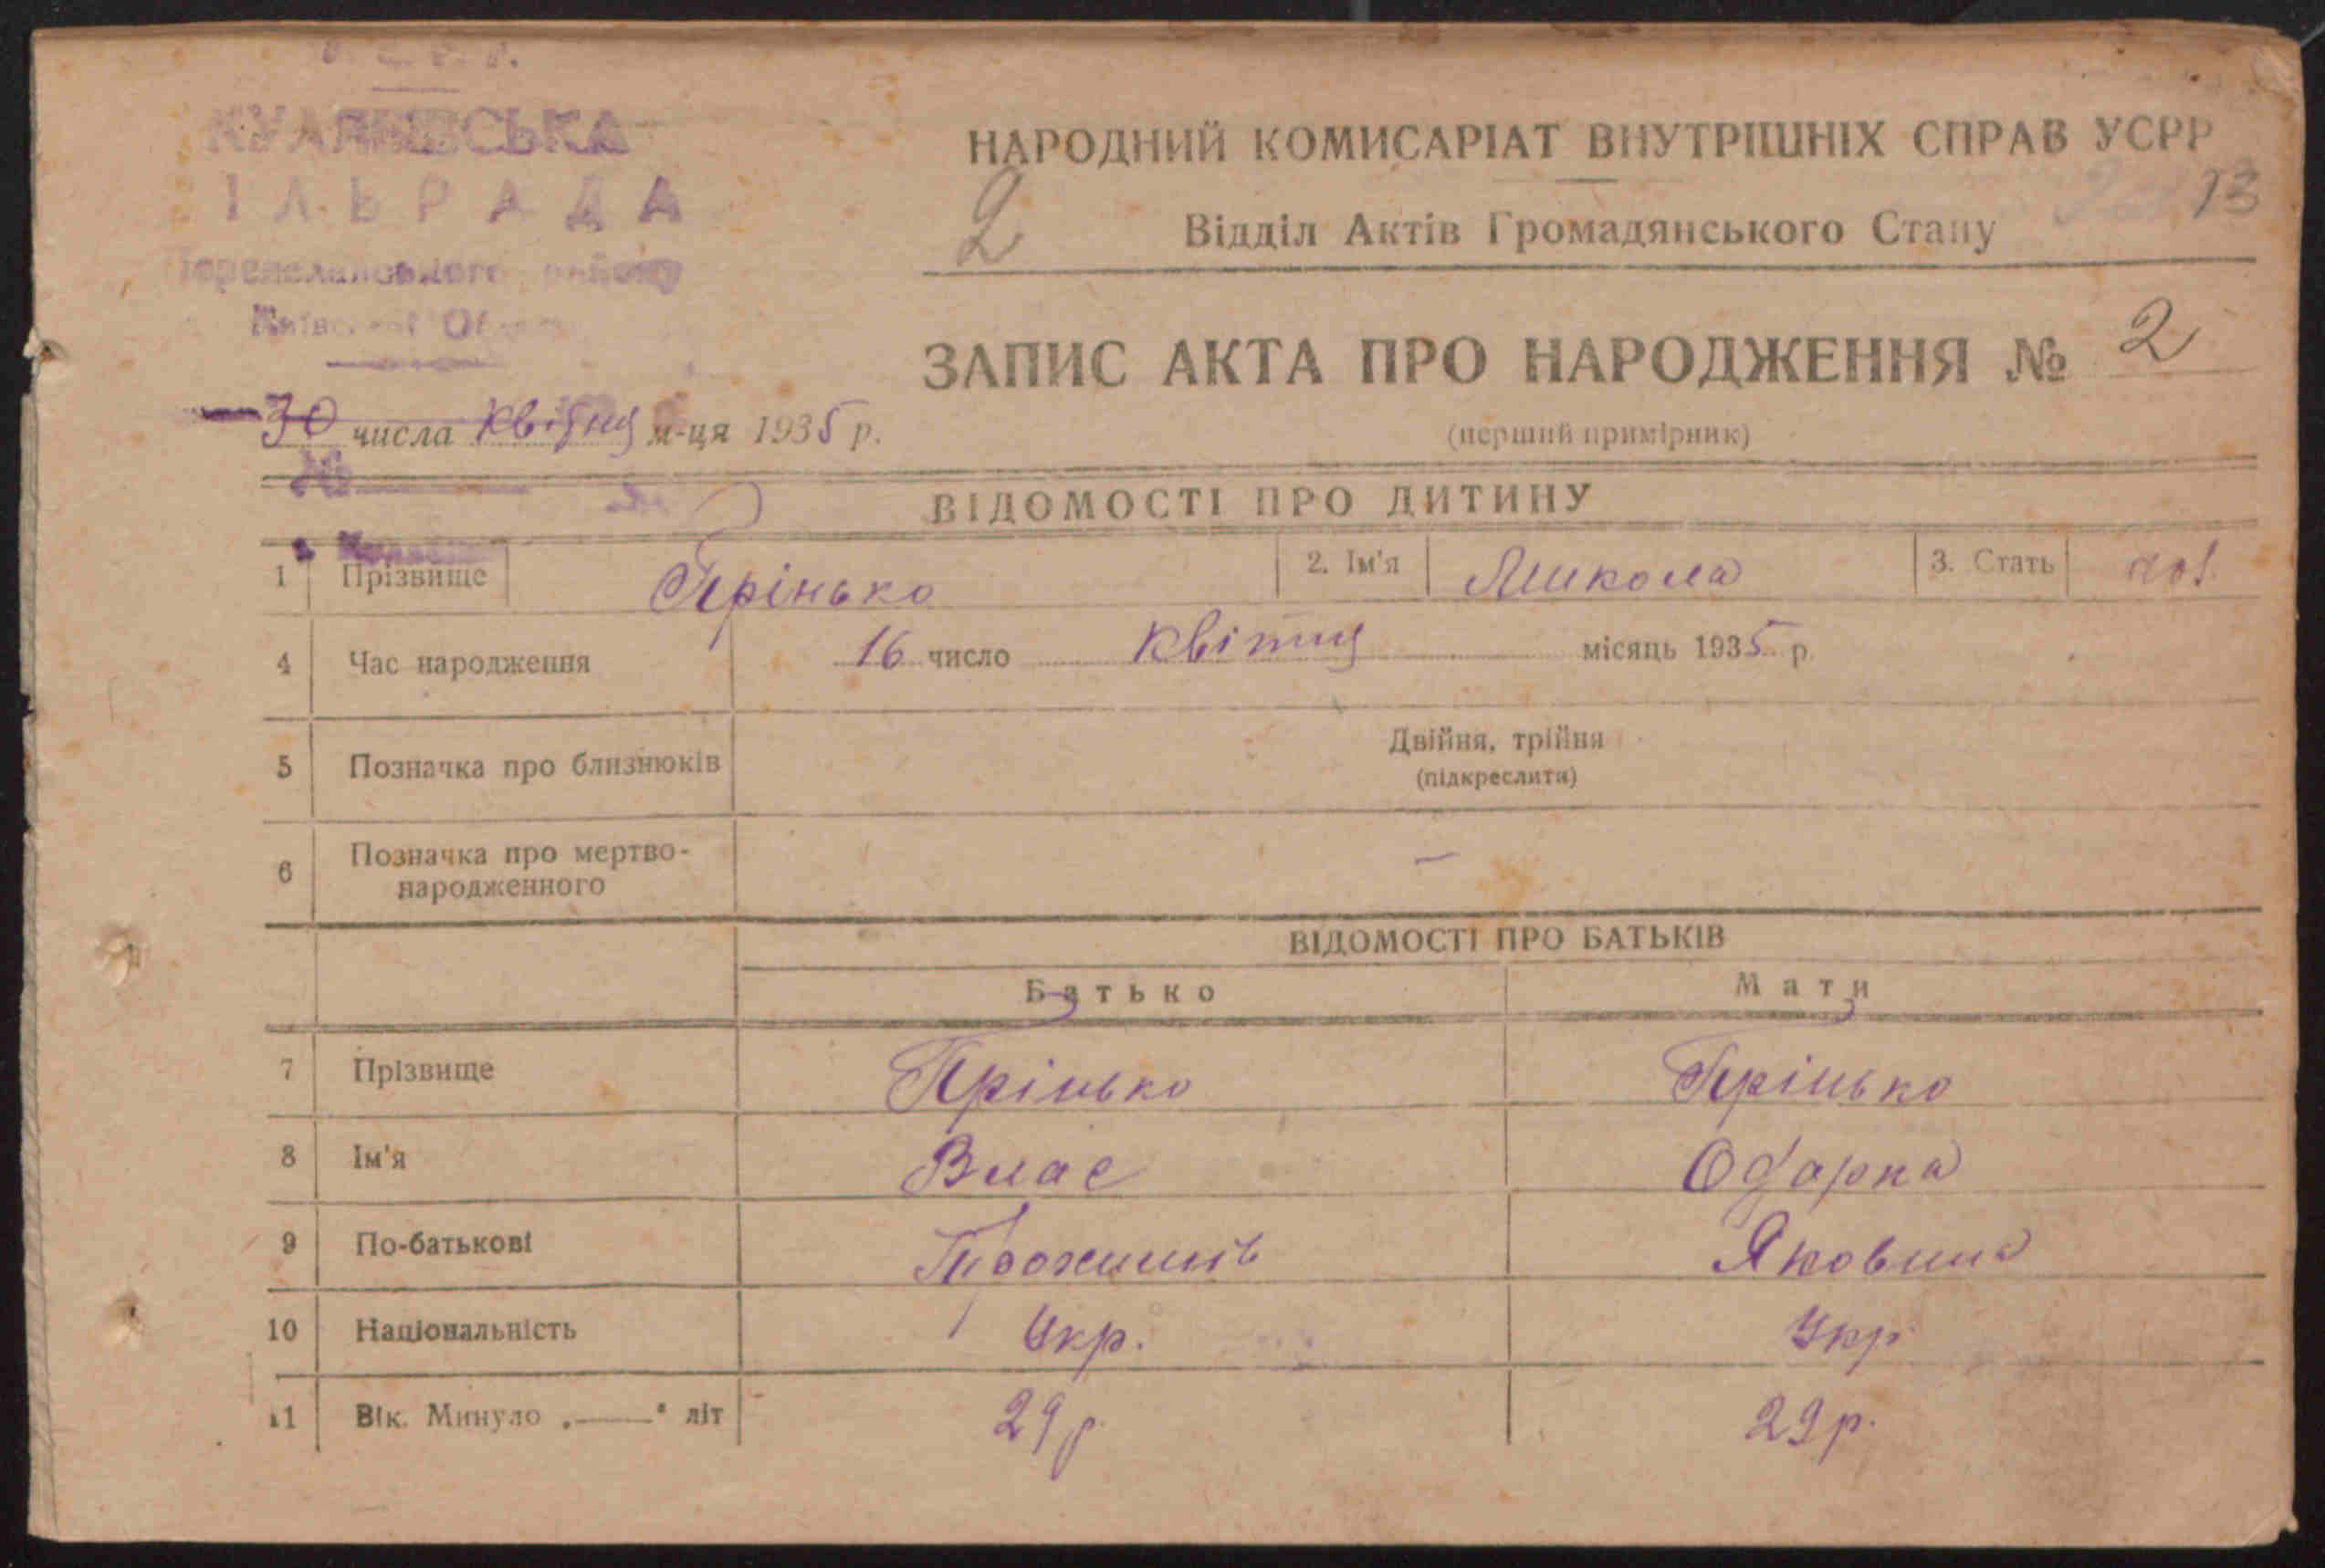 ІЛЬРАДА
НАРОДНИЙ КОМИСАРІАТ ВНУТРІШНІХ СПРАВ УСРР
2
13
Відділ Актів Громадянського Стану
ЗАПИС АКТА ПРО НАРОДЖЕННЯ № 2
(перший примірник)
30 числа Квітня м-ця 1935 р.
№
ВІДОМОСТІ ПРО ДИТИНУ
1 Прізвище 2. Ім'я Микола 3. Стать
4 Час народження 16 число Квітня місяць 1935 р.
5 Позначка про близнюків Двійня, трійня
(підкреслити)
6 Позначка про мертво-
народженного —
ВІДОМОСТІ ПРО БАТЬКІВ
Батько Мати
7 Прізвище
8 Ім'я Влас Одарка
9 По-батькові Яковина
10 Національність Укр. Укр
11 Вік. Минуло „——" літ 29 р. 29 р.